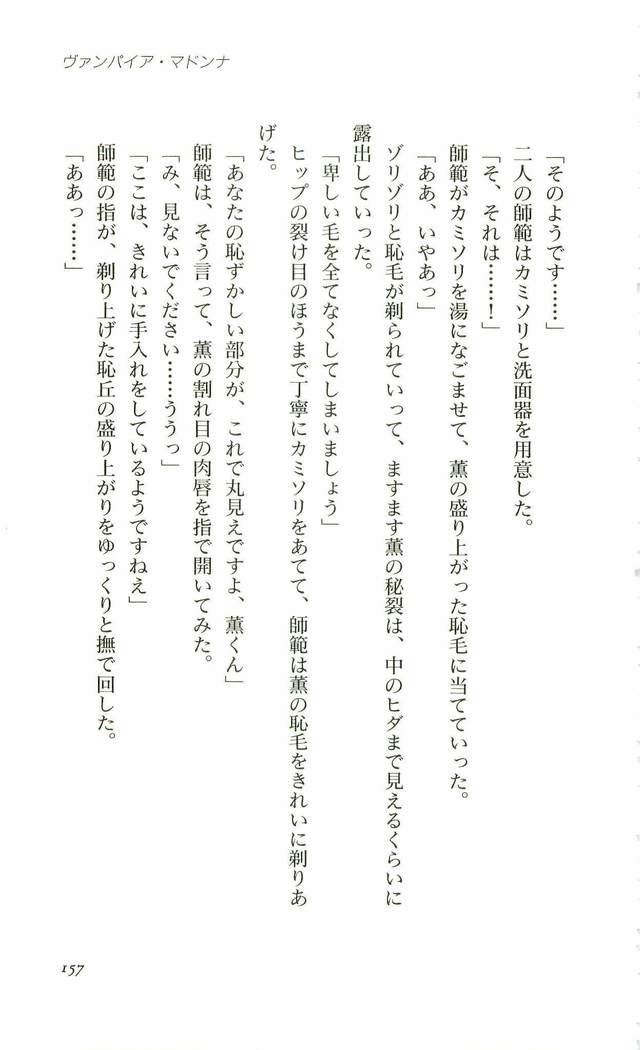 ヴァンパイア・マドンナ
「そのようです……」
二人の師範はカミソリと洗面器を用意した。
「そ、それは……！」
師範がカミソリを湯になごませて、薫の盛り上がった恥毛に当てていった。
「ああ、いやあっ」
ゾリゾリと恥毛が剃られていって、ますます薫の秘裂は、中のヒダまで見えるくらいに
露出していった。
「卑しい毛を全てなくしてしまいましょう」
ヒップの裂け目のほうまで丁寧にカミソリをあてて、師範は薫の恥毛をきれいに剃りあ
げた。
「あなたの恥ずかしい部分が、これで丸見えですよ、薫くん」
師範は、そう言って、薫の割れ目の肉唇を指で開いてみた。
「み、見ないでください……ううっ」
「ここは、きれいに手入れをしているようですねえ」
師範の指が、剃り上げた恥丘の盛り上がりをゆっくりと撫で回した。
「ああっ……」
157